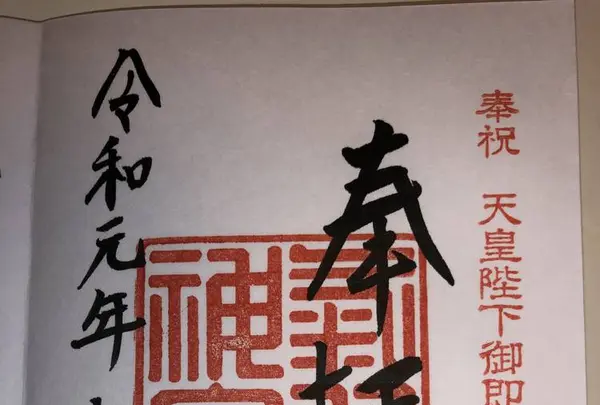 奉祝 天皇陛下御即
奉
令和元年